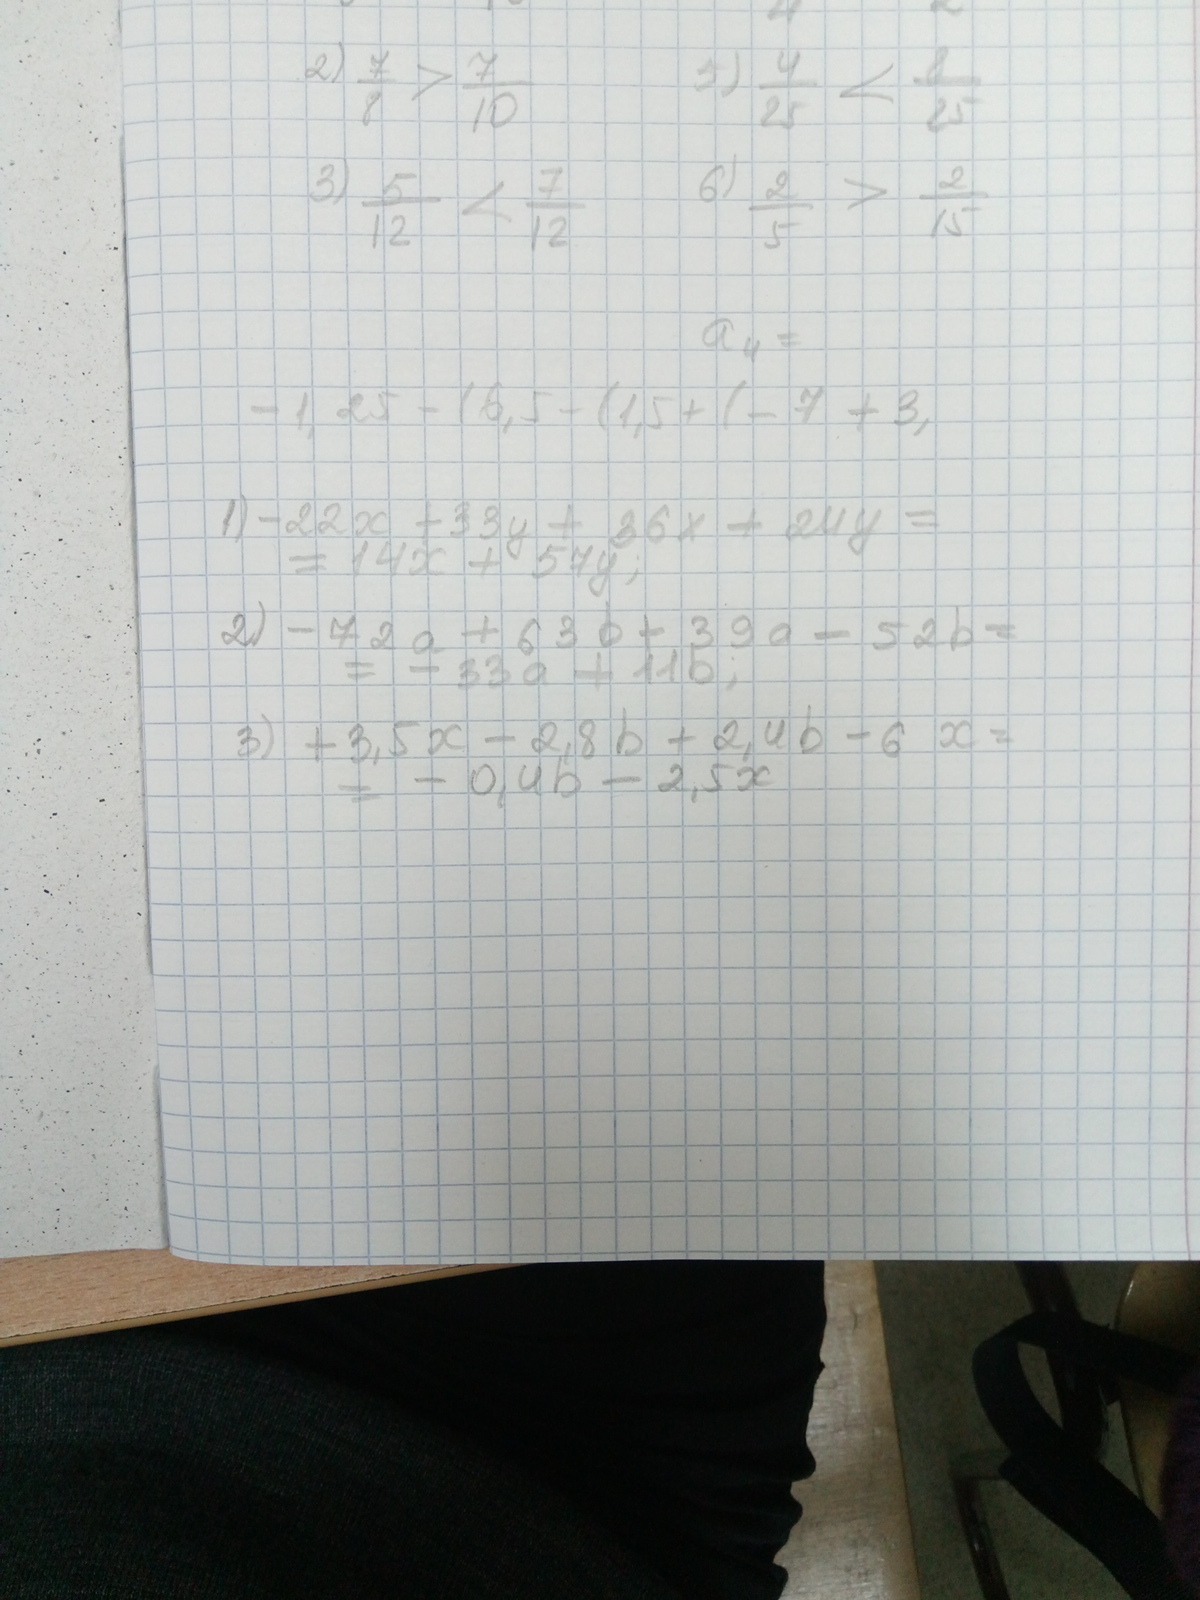 2) 7/8 > 7/10 5) 4/25 < 8/25
3) 5/12 < 7/12 6) 2/5 > 2/15
a₄ =
-1,25 - (6,5 - (1,5 + (-7 + 3,
1) -22x + 33y + 36x + 24y =
= 14x + 57y;
2) -72a + 63b + 39a - 52b =
= -33a + 11b;
3) +3,5x - 2,8b + 2,4b - 6x =
= -0,4b - 2,5x